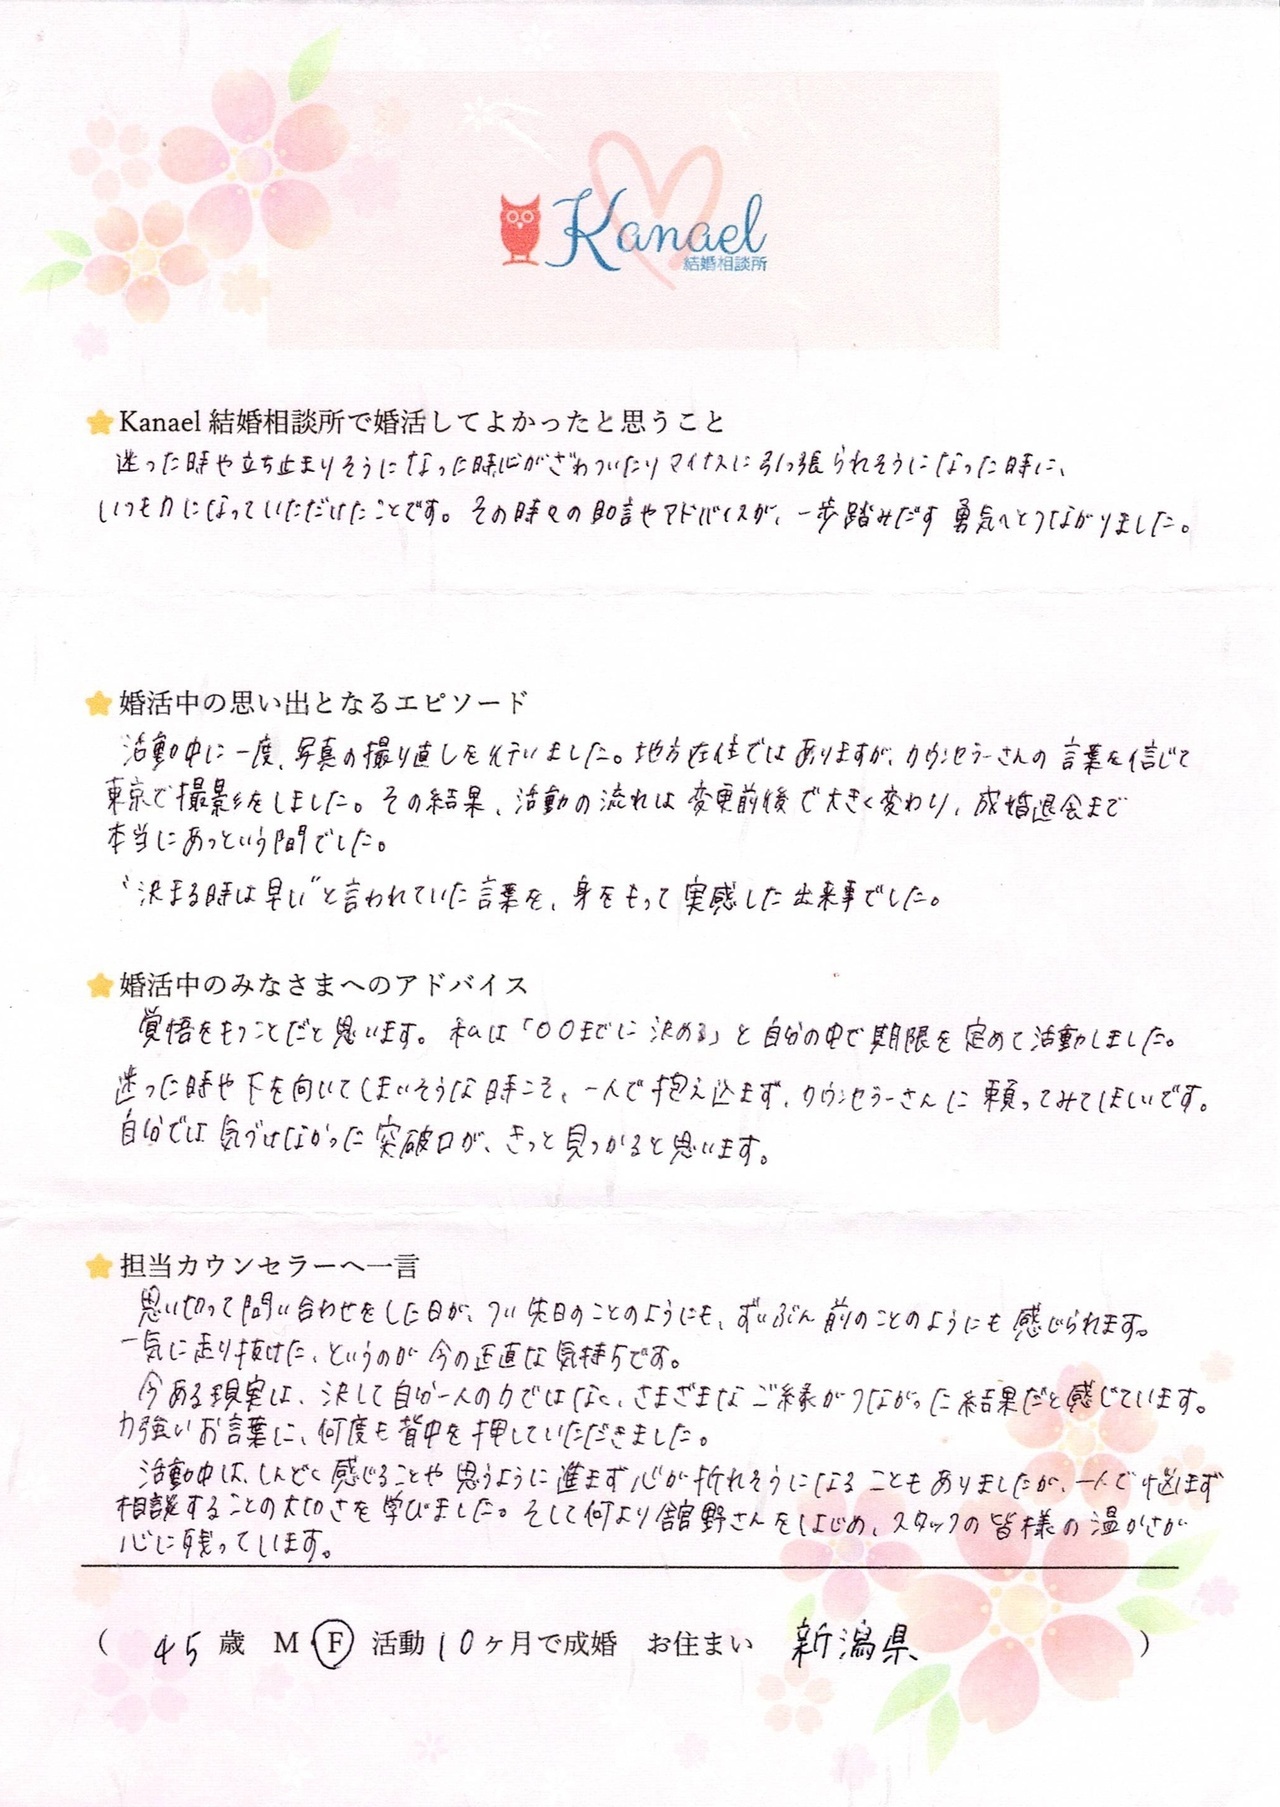 Kanael
結婚相談所
Kanael 結婚相談所で婚活してよかったと思うこと
迷った時や立ち止まりそうになった時心がざわついたりマイナスに引っ張られそうになった時に、
いつも力になっていただけたことです。その時々の助言やアドバイスが、一歩踏みだす勇気へとつながりました。
婚活中の思い出となるエピソード
活動中に一度、写真の撮り直しを行いました。地方在住ではありますが、カウンセラーさんの言葉を信じて
東京で撮影をしました。その結果、活動の流れは変更前後で大きく変わり、成婚退会まで
本当にあっという間でした。
“決まる時は早い”と言われていた言葉を、身をもって実感した出来事でした。
婚活中のみなさまへのアドバイス
覚悟をもつことだと思います。私は「〇〇までに決める」と自分の中で期限を定めて活動しました。
迷った時や下を向いてしまいそうな時こそ、一人で抱え込まず、カウンセラーさんに頼ってみてほしいです。
自分では気づけなかった突破口が、きっと見つかると思います。
担当カウンセラーへ一言
思い切って問い合わせをした日が、つい先日のことのようにも、ずいぶん前のことのようにも感じられます。
一気に走り抜けた、というのが今の正直な気持ちです。
今ある現実は、決して自分一人の力ではなく、さまざまなご縁がつながった結果だと感じています。
力強いお言葉に、何度も背中を押していただきました。
活動中は、しんどく感じることや思うように進まず心が折れそうになることもありましたが、一人で悩まず
相談することの大切さを学びました。そして何より舘野さんをはじめ、スタッフの皆様の温かさが
心に残っています。
( 45歳 M F 活動10ヶ月で成婚 お住まい 新潟県 )